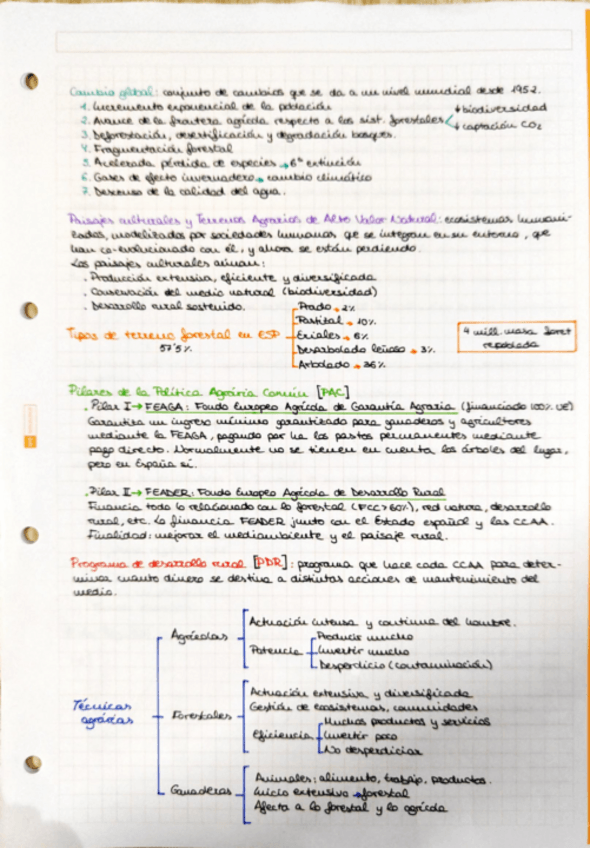 Cambio global: conjunto de cambios que se da a un nivel mundial desde 1952.
1. Incremento exponencial de la población
2. Avance de la frontera agrícola respecto a los sist. forestales ↓biodiversidad ↓captación CO₂
3. Deforestación, desertificación y degradación bosques.
4. Fragmentación forestal
5. Acelerada pérdida de especies → 6ª extinción
6. Gases de efecto invernadero → cambio climático
7. Descenso de la calidad del agua.
Paisajes culturales y Terrenos Agrarios de Alto Valor Natural: ecosistemas humani-
zados, modelizados por sociedades humanas que se integran en su entorno, que
han co-evolucionado con él, y ahora se están perdiendo.
Los paisajes culturales aúnan:
. Producción extensiva, eficiente y diversificada
. Conservación del medio natural (biodiversidad)
. Desarrollo rural sostenido.
Tipos de terreno forestal en ESP
57'5%
Prado → 2%
Pastizal → 10%
Eriales → 6%
Desarbolado leñoso → 3%
Arbolado → 36%
4 mill. masa forest
repoblada
Pilares de la Política Agraria Común [PAC]
. Pilar I → FEAGA: Fondo Europeo Agrícola de Garantía Agraria (financiado 100% UE)
Garantiza un ingreso mínimo garantizado para ganaderos y agricultores
mediante la FEAGA, pagando por ha los pastos permanentes mediante
pago directo. Normalmente no se tienen en cuenta los árboles del lugar,
pero en España sí.
. Pilar II → FEADER: Fondo Europeo Agrícola de Desarrollo Rural
Financia todo lo relacionado con lo forestal (FCC>60%), red natura, desarrollo
rural, etc. Lo financia FEADER junto con el Estado español y las CCAA.
Finalidad: mejorar el medioambiente y el paisaje rural.
Programa de desarrollo rural [PDR]: programa que hace cada CCAA para deter-
minar cuanto dinero se destina a distintas acciones de mantenimiento del
medio.
Técnicas
agrarias
Agrícolas
Actuación intensa y continua del hombre.
Potencia
Producir mucho
Invertir mucho
Desperdicio (contaminación)
Forestales
Actuación extensiva y diversificada
Gestión de ecosistemas, comunidades
Eficiencia
Muchos productos y servicios
Invertir poco
No desperdiciar
Ganaderas
Animales: alimento, trabajo, productos.
Inicio extensivo → forestal
Afecta a lo forestal y lo agrícola